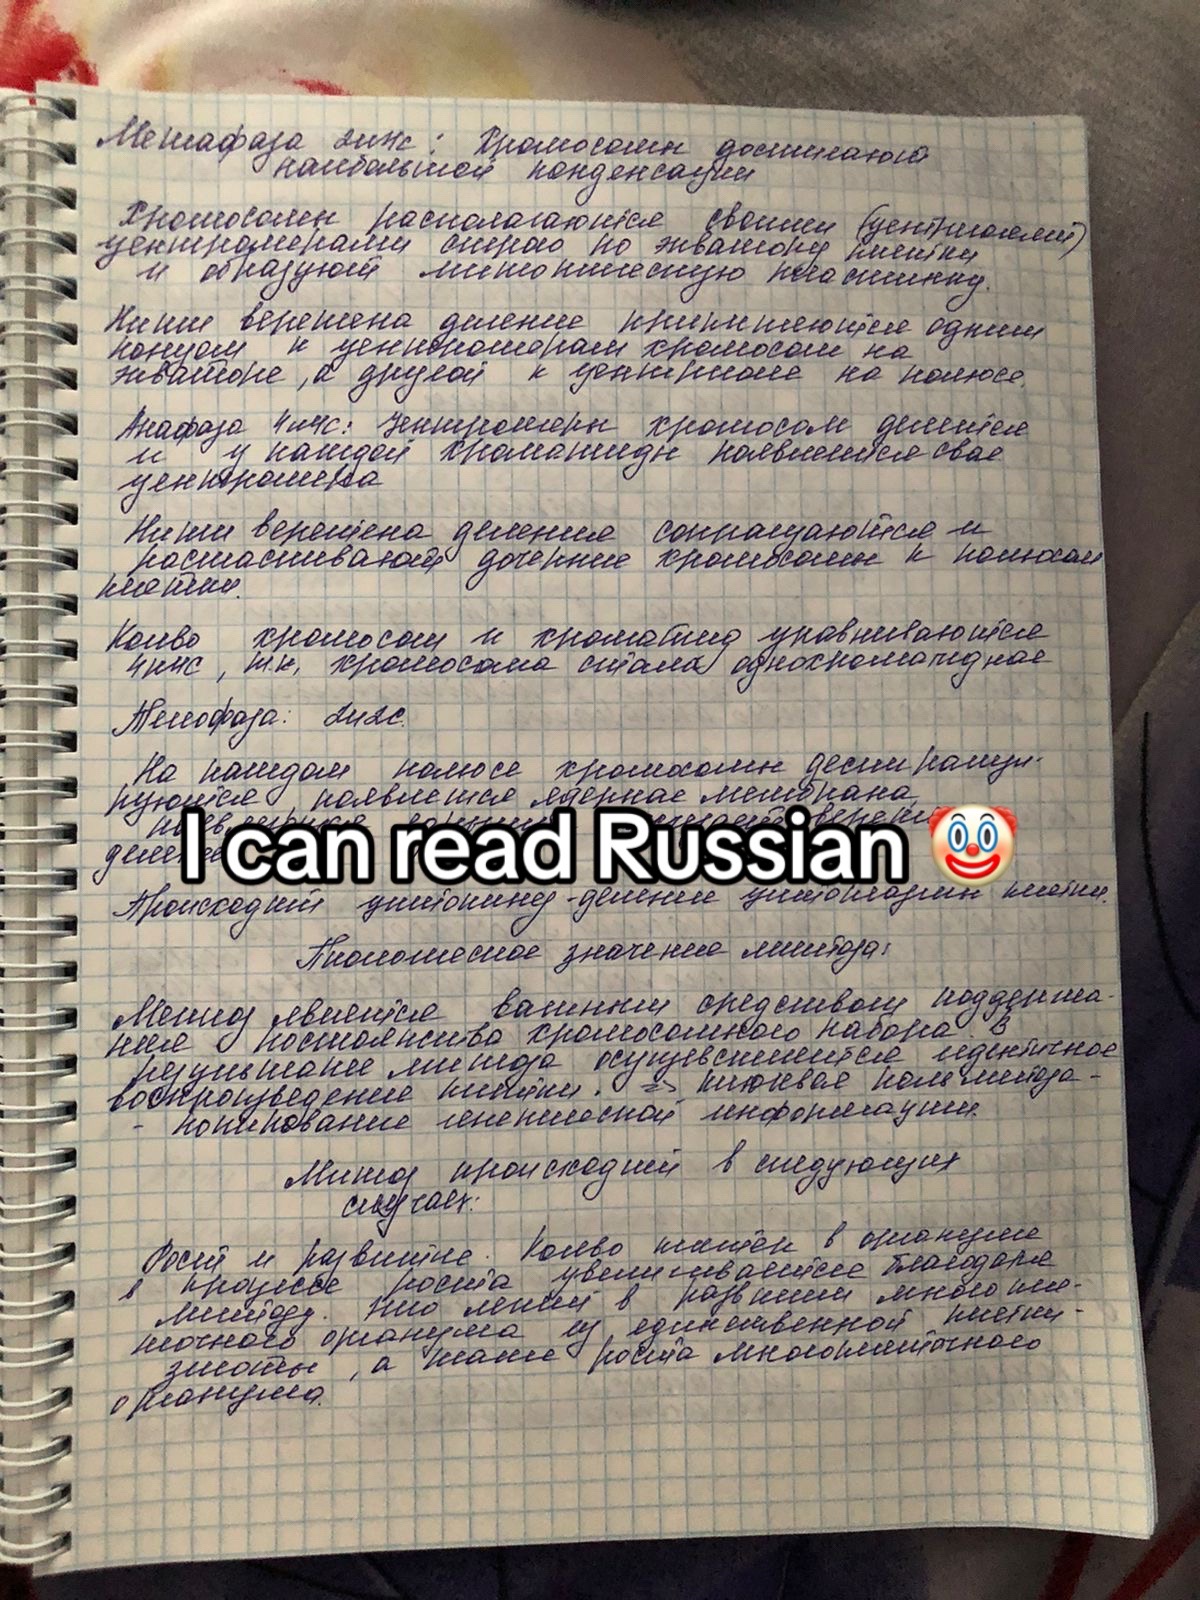 Метафаза 2n4c: Хромосомы достигают
наибольшей конденсации
Хромосомы располагаются своими (центриолями)
центромерами строго по экватору клетки
и образуют метапластинку.
Нити веретена деления прикрепляются одним
концом к центромерам хромосом на
экваторе, а другой к центриоле на полюсе.
Анафаза 4n4c: Центромеры хромосом делятся
и у каждой хроматиды появляется своя
центромера
Нити веретена деления сокращаются и
растаскивают дочерние хромосомы к полюсам
клетки.
Кол-во хромосом и хроматид уравнивается
4n4c, т.к. хромосома стала однохроматидная
Телофаза: 2n2c.
На каждом полюсе хромосомы деспирализу-
руются, появляется ядерная мембрана,
I can read Russian 🤡
Происходит цитокинез - деление цитоплазмы клетки.
Биологическое значение митоза:
Митоз является важным средством поддержа-
ния постоянства хромосомного набора. В
результате митоза осуществляется идентичное
воспроизведение клетки. => ключевая роль митоза -
- копирование генетической информации
Митоз происходит в следующих
случаях:
Рост и развитие. Кол-во клеток в организме
в процессе роста увеличивается благодаря
митозу. Это лежит в развитии многокле-
точного организма из единственной клетки -
зиготы, а также роста многоклеточного
организма.